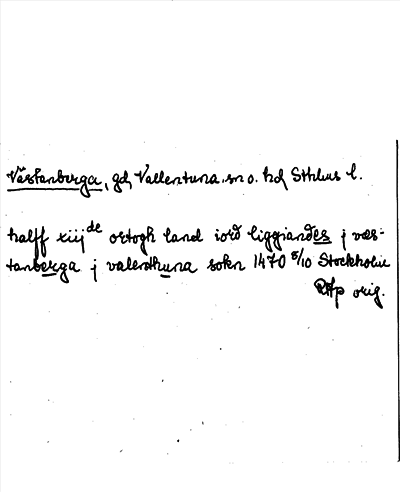 Västanberga, gd, Vallentuna sn o. hd Sthlms l.
halff xiij de ortogh land iord liggiandes j væs-
tanberga j valenthuna sokn 1470 5/10 Stockholm
RAp orig.